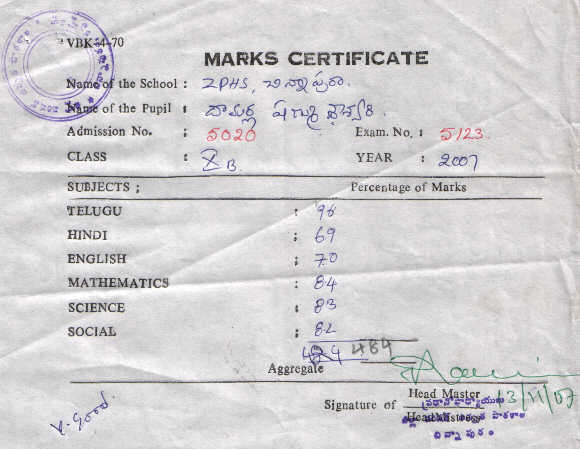 MARKS CERTIFICATE
Name of the School : ZPHS, చిన్నాపురం.
Name of the Pupil : దామర్ల
Admission No. : 5020 Exam. No. : 5123
CLASS : X B. YEAR : 2007
SUBJECTS ; Percentage of Marks
TELUGU : 96
HINDI : 69
ENGLISH : 70
MATHEMATICS : 84
SCIENCE : 83
SOCIAL : 82
484
Aggregate
V. Good.
Signature of Head Master 13/11/07
ప్రధానోపాధ్యాయులు
Headmistress
జిల్లా పరిషత్ ఉన్నత పాఠశాల
చిన్నాపురం